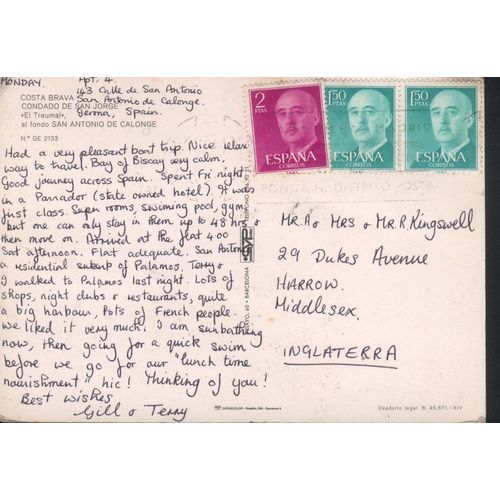 MONDAY.
Apt. 4.
143 Calle de San Antonio
San Antonio de Calonge.
Gerona, Spain.
COSTA BRAVA
CONDADO DE SAN JORGE
«El Treumal»,
al fondo SAN ANTONIO DE CALONGE
N.º GE 2133
Had a very pleasant boat trip. Nice relaxing
way to travel. Bay of Biscay very calm.
Good journey across Spain. Spent Fri night
in a Parrador (state owned hotel). It was
just class. Super rooms, swimming pool, gym,
but one can only stay in them up to 48 hrs
then move on. Arrived at the flat 4.00
Sat afternoon. Flat adequate. San Antonio
a residential suburb of Palamos. Terry &
I walked to Palamos last night. Lots of
shops, night clubs & restaurants, quite
a big harbour, lots of French people.
We liked it very much. I am sunbathing
now, then going for a quick swim
before we go for our "lunch time
nourishment" hic! Thinking of you!
Best wishes
Gill & Terry
2
PTAS
ESPAÑA
CORREOS
1'50
PTAS
ESPAÑA
CORREOS
1'50
PTAS
ESPAÑA
CORREOS
PONGA N. DISTRITO POSTAL
BARCELONA
Mr. A & Mrs & Mr. R. Kingswell
29 Dukes Avenue
HARROW.
Middlesex.
INGLATERRA
Depósito legal. B. 45.671.-XIV